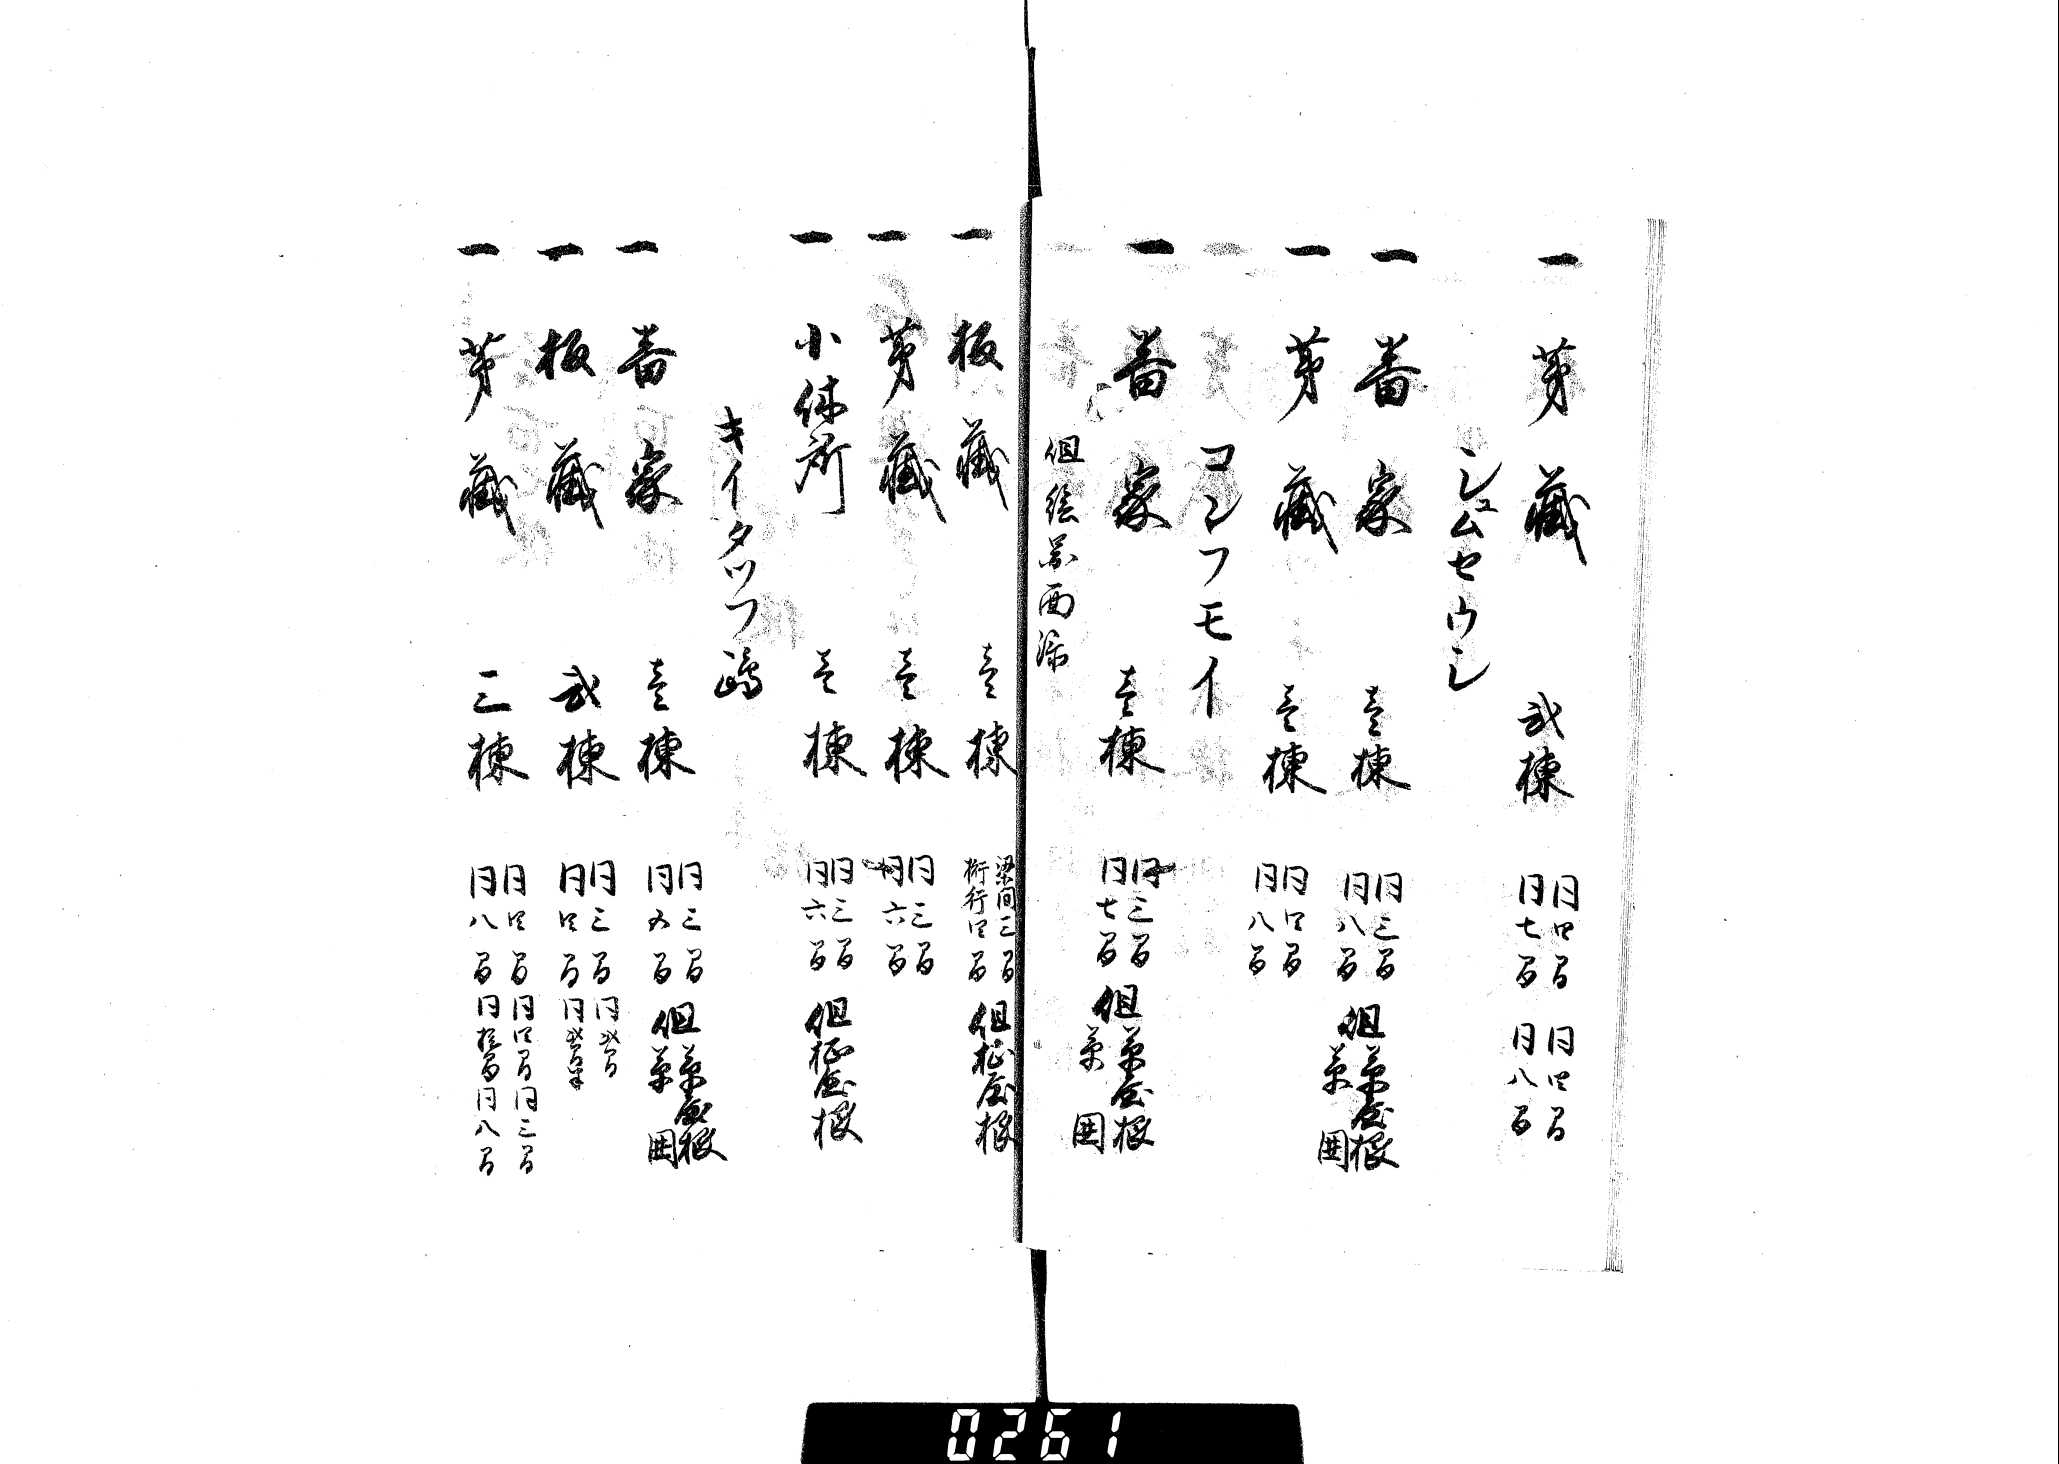 一 茅蔵 弐棟 同四間 同七間 同四間 同八間
シユムセウシ
一 番家 壱棟 同三間 同八間 但 草屋根 草囲
一 茅蔵 壱棟 同四間 同八間
コンフモイ
一 番家 壱棟 同三間 同七間 但 草屋根 草囲
但絵図面添
一 板蔵 壱棟 梁間三間 桁行四間 但柾屋根
一 茅蔵 壱棟 同三間 同六間
一 小休所 壱棟 同三間 同六間 但柾屋根
キイタツフ嶋
一 番家 壱棟 同三間 同五間 但 草屋根 草囲
一 板蔵 弐棟 同三間 同四間 同弐間 同弐間半
一 茅蔵 三棟 同四間 同八間 同四間 同拾間 同三間 同八間
0261